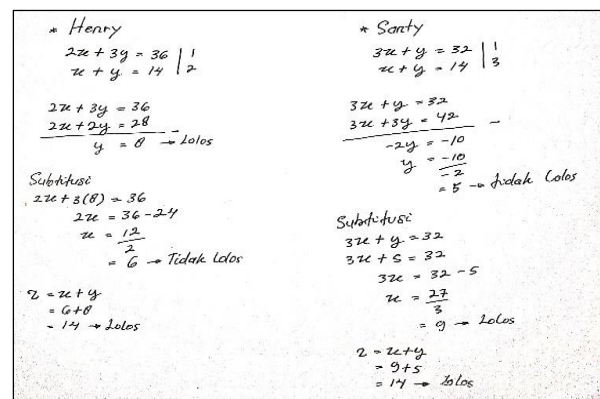 * Henry
2x + 3y = 36 | 1
x + y = 14 | 2
2x + 3y = 36
2x + 2y = 28 -
y = 8 → Lolos
Subtitusi
2x + 3(8) = 36
2x = 36 - 24
x = 12
2
= 6 → Tidak Lolos
z = x + y
= 6 + 8
= 14 → Lolos
* Santy
3x + y = 32 | 1
x + y = 14 | 3
3x + y = 32
3x + 3y = 42 -
-2y = -10
y = -10
-2
= 5 → tidak Lolos
Subtitusi
3x + y = 32
3x + 5 = 32
3x = 32 - 5
x = 27
3
= 9 → Lolos
z = x + y
= 9 + 5
= 14 → Lolos